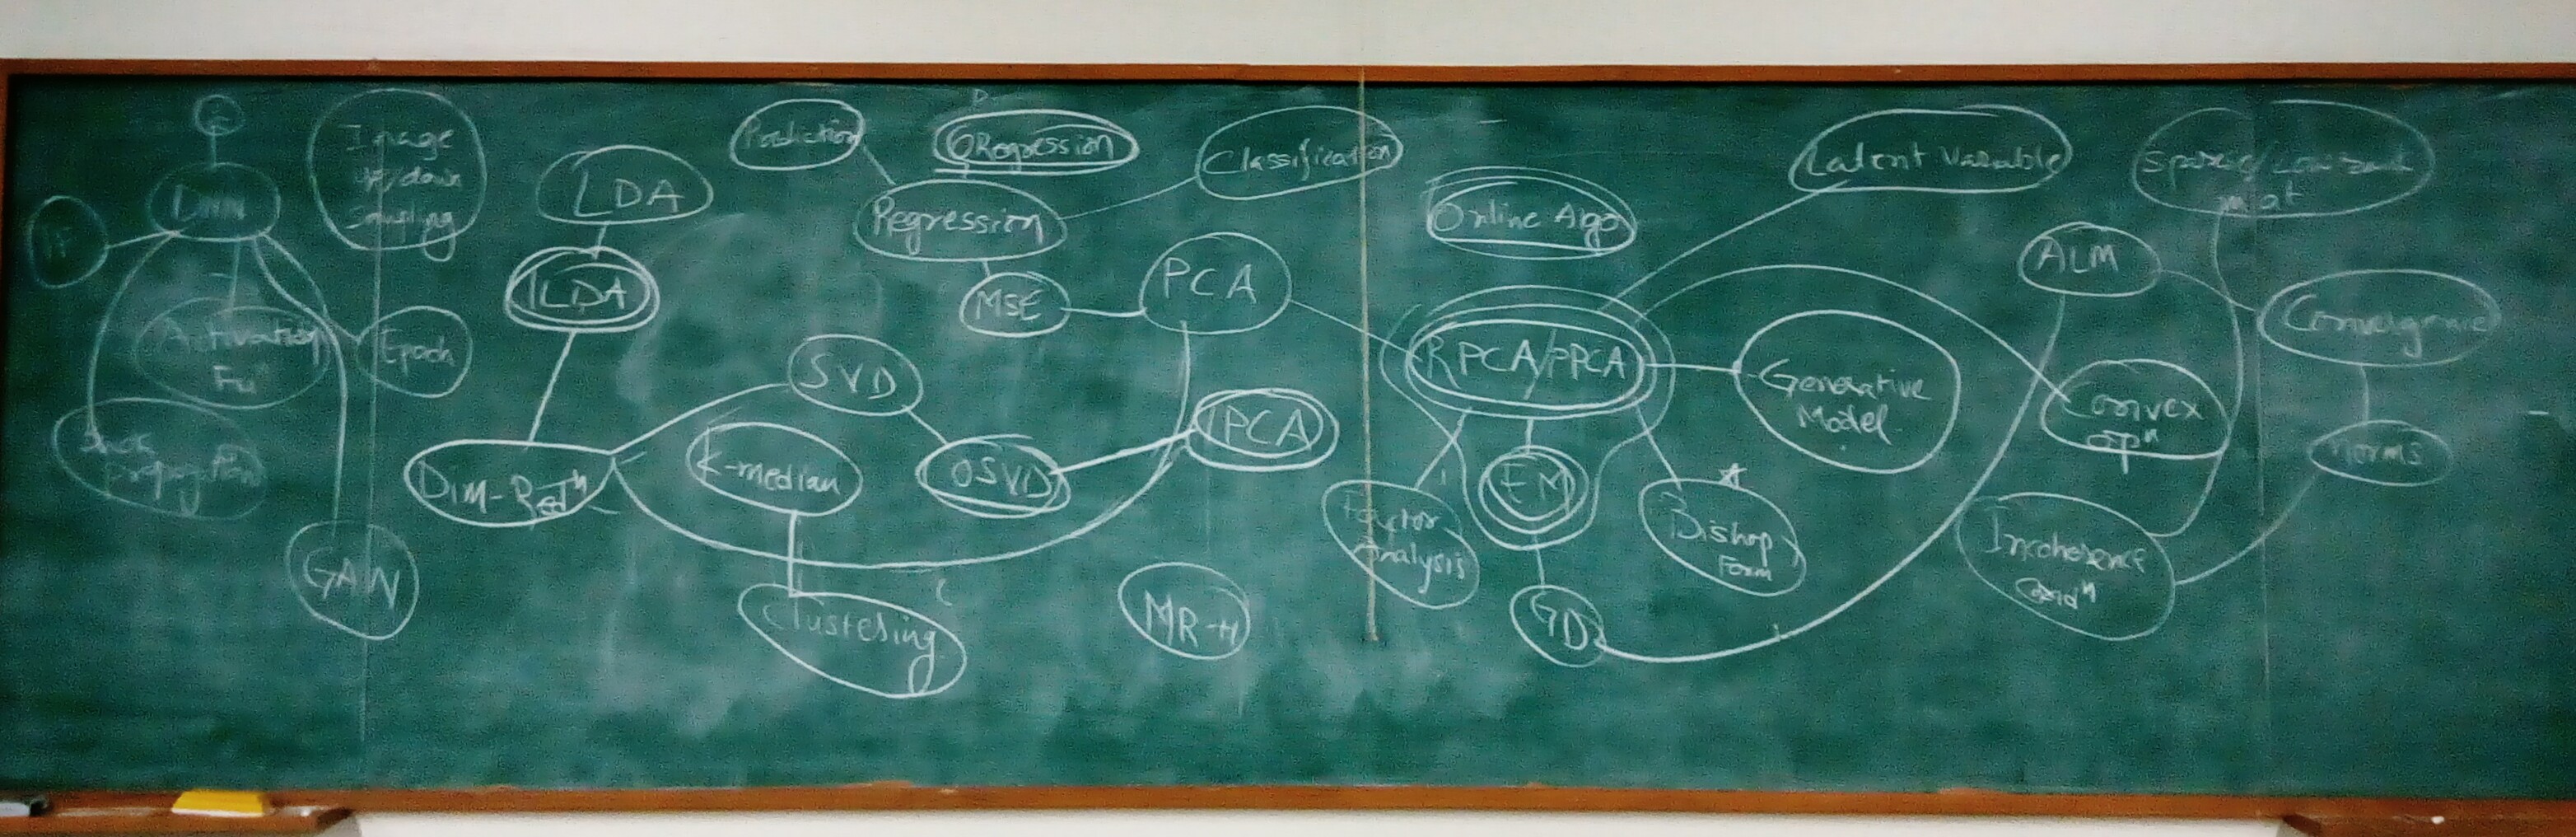 DNN
Image
up/down
Sampling
Activation
Fuⁿ
Epoch
Back
propagation
GAN
LDA
ILDA
Dim-Redⁿ
Prediction
ORegression
Classification
Regression
MSE
PCA
SVD
K-median
OSVD
IPCA
Clustering
MR-H
Online Algo
Latent Variable
RPCA/PPCA
Generative
Model
EM
Factor
Analysis
Bishop
Form
GD
Sparse/Low rank
mat
ALM
Convergence
Convex
OPⁿ
norms
Incoherence
Condⁿ